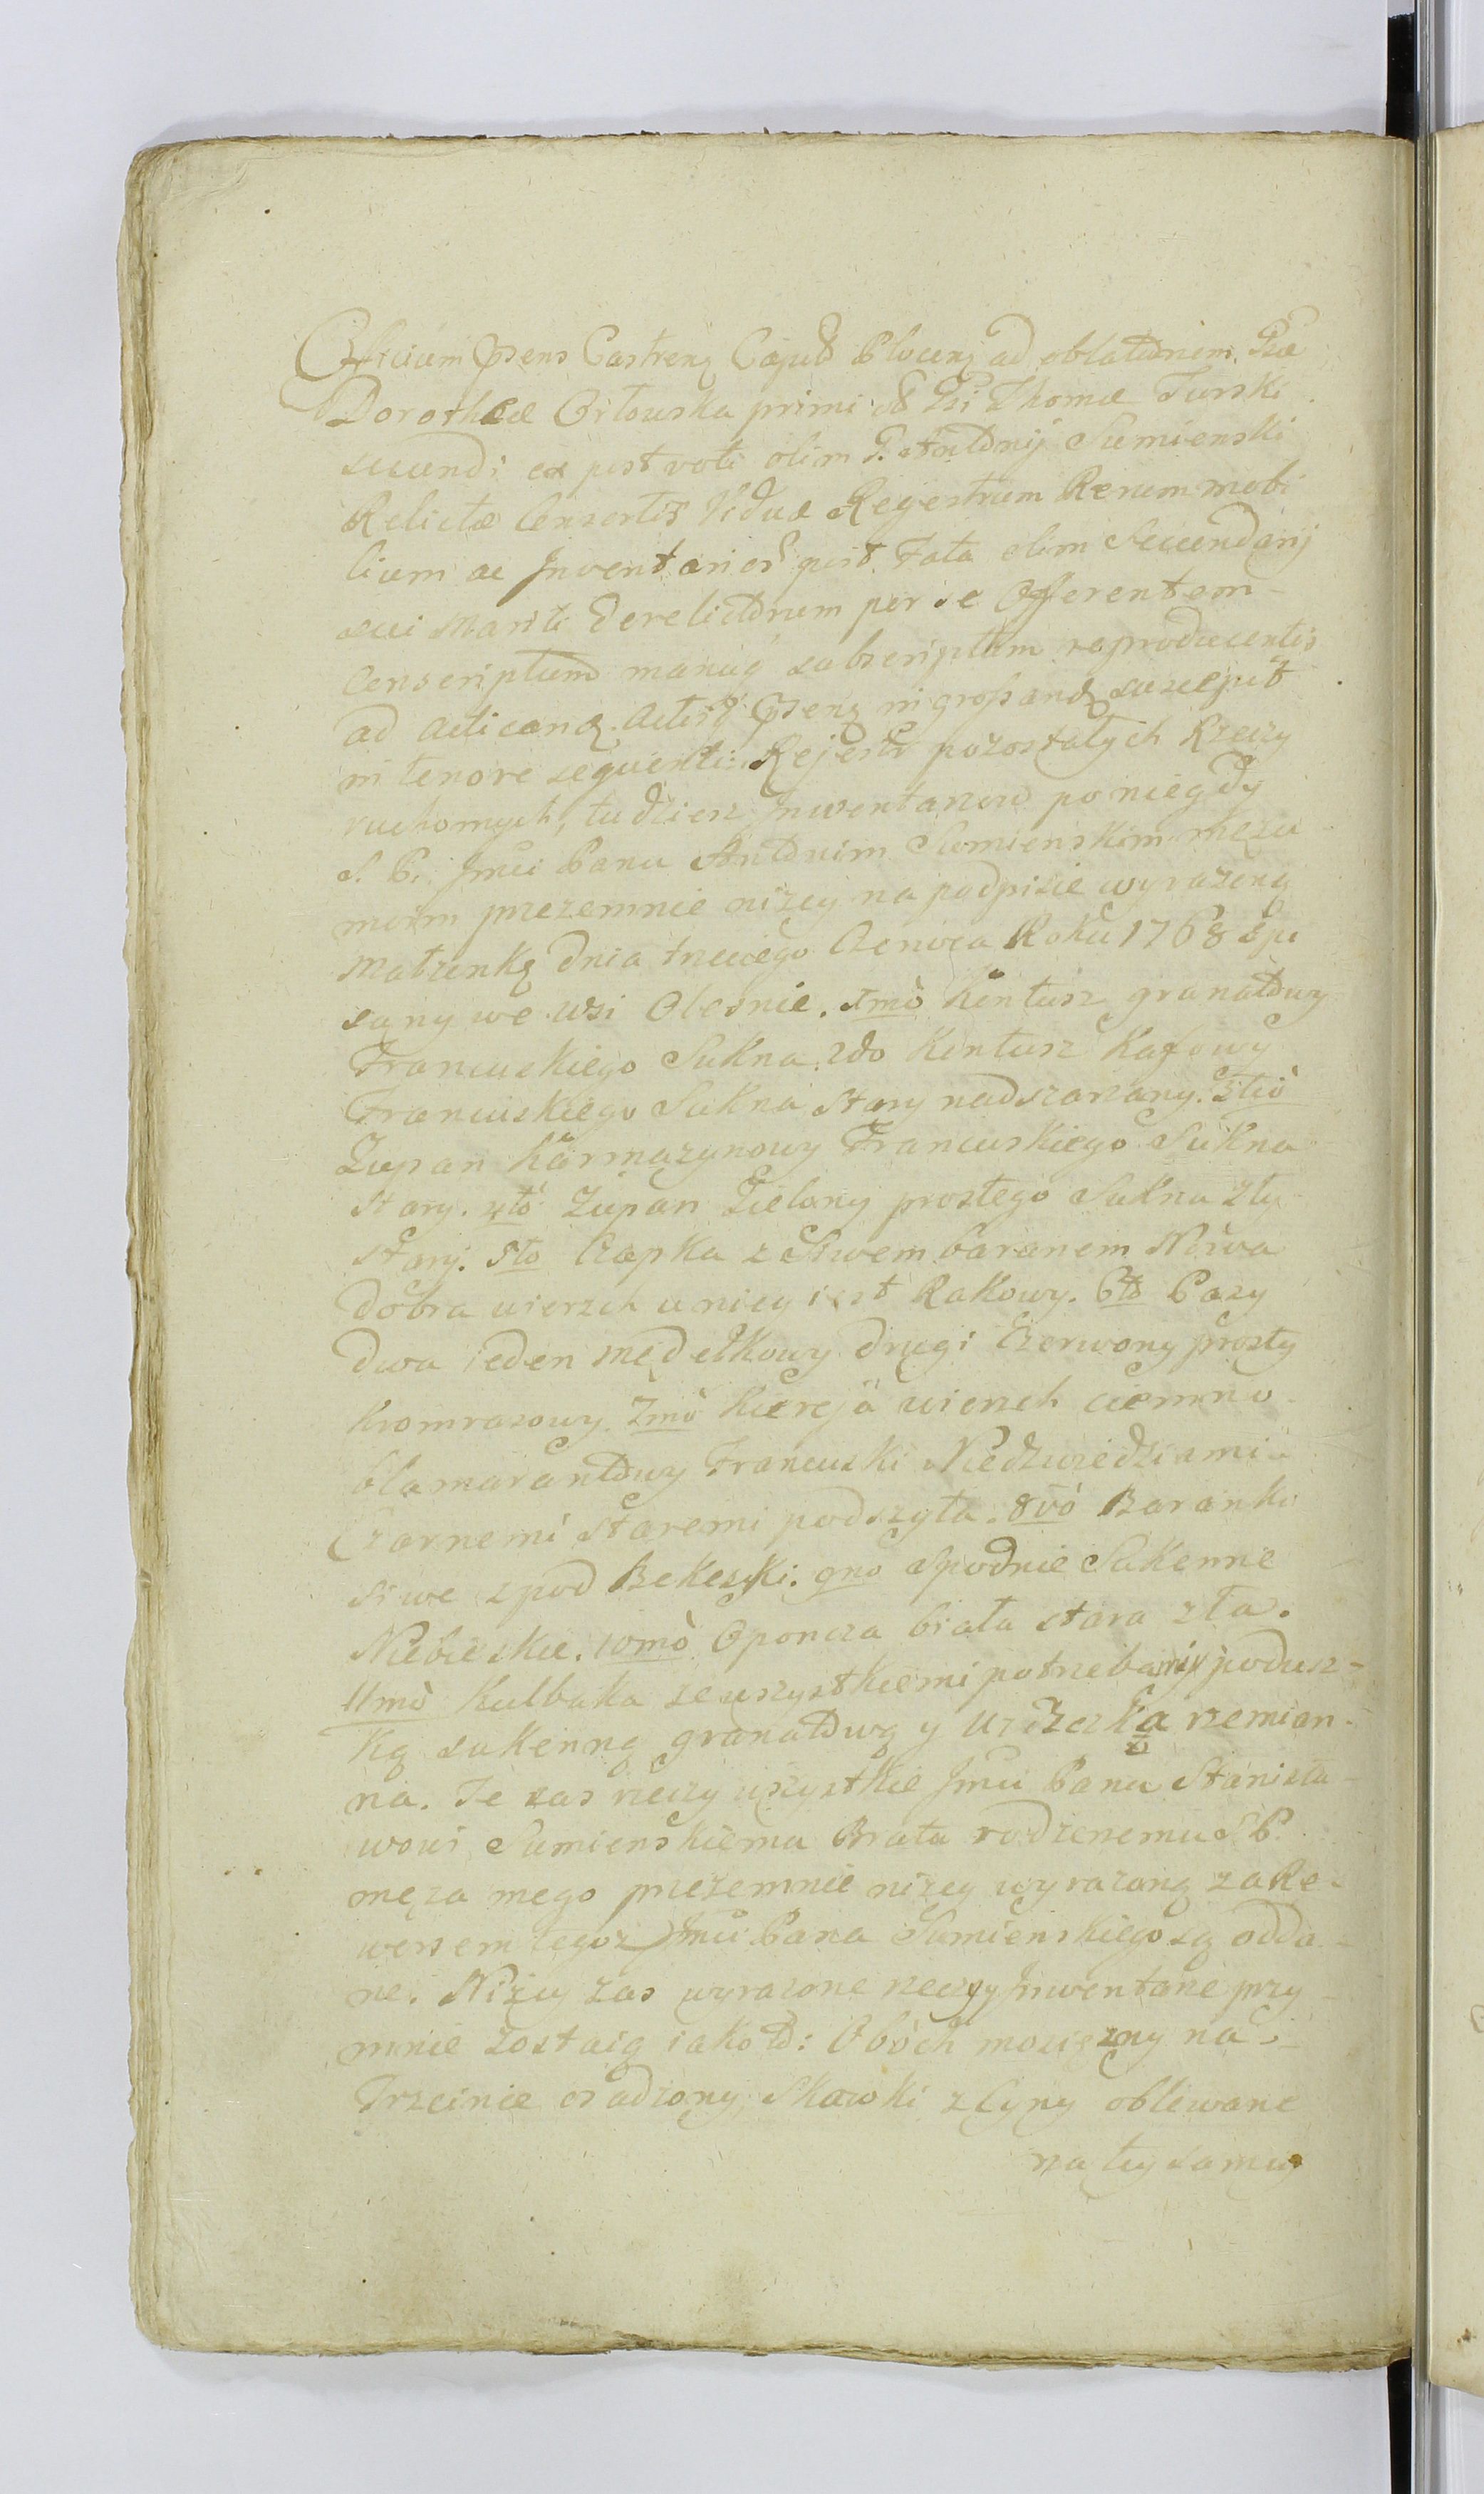 Officium Psens Castrenz Capit̃ Plocenz ad oblatõnem Gñæ
Dorotheæ Orłouska primi Gñi Thomæ Turski
secundi ex post voti olim G. Antõnij Sumienski
Relictæ Consortis Viduæ Regestrum Rerum mobi
lium ac Inventarior̃ post Fata olim Secundarij
sui Mariti derelictõrum per se Offerentem
Conscriptum manuq̃ subscriptum reproducentis
ad acticanđ. Actisq̃ Psenz ingrossanđ suscepit
in tenore sequenti: Rejestr pozostałych Rzeczy
ruchomych, tudziesz Inwentarzow po niegdy
S. P. Jmci Panu Antõnim Sumienskim mezu
moim przezemnie nizey na podpisie wyrazoną
Małzonkę dnia trzeciego Czerwca Roku 1768 spi
sany we wsi Obesnie. 1mò Kontusz granatowy
Francuskiego Sukna. 2do Kontusz Kafowy
Francuskiego Sukna Stary nadszarzany. 3tiò
Zupan Karmazynowy Francuskiego Sukna
Stary. 4tò Zupan Zielony prostego Sukna zły
Stary. 5to Czapka z Siwem baranem Nowa
dobra wierzch u niey iest Rakowy. 6tò Pasy
dwa ieden mędelkowy drugi Czerwony prosty
Kromrasowy. 7mò Kiereja wierzch ciemno
blamarantowy Francuski Niedzwiedziami
Czarnemi Staremi podszyta. 8vò Baranki
siwe zpod Bekeszki. 9no Spodnie Sukienne
Niebieskie. 10mò Oponcza biała stara zła.
11mò Kulbaka ze wszystkiemi potrzebami y podusz-
ką sukienną granatową y Uzdeczka rzemian-
na. Te zas rzeczy wszystkie Jmci Panu Stanisła-
wowi Sumienskiemu Bratu rodzonemu S. P.
męza mego przezemnie nizey wyrazoną za Re-
wersem tegoz Jmci Pana Sumienskiego są odda-
ne. Nizey zas wyrazone rzeczy y Inwentarze przy
mnie zostaią iako to: Oboch mosiężny na
Trzcinie osadzony, Skawki z Cyny oblewane
na tey samey